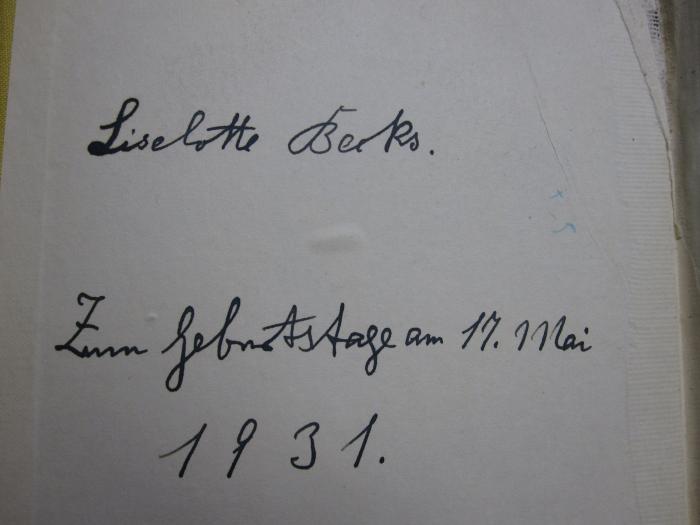 Liselotte Berks.
Zum Geburtstage am 17. Mai
1931.